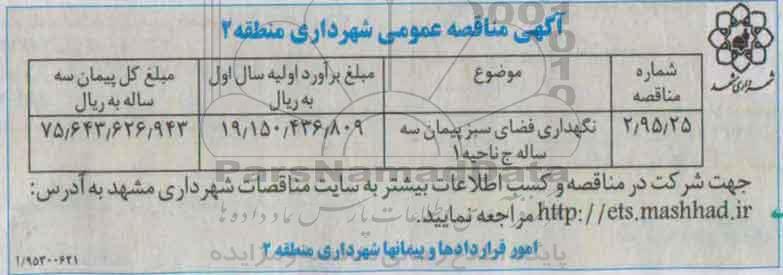 آگهی مناقصه عمومی شهرداری منطقه ۲
شهرداری مشهد
شماره مناقصه
موضوع
مبلغ برآورد اولیه سال اول به ریال
مبلغ کل پیمان سه ساله به ریال
۲٫۹۵٫۲۵
نگهداری فضای سبز پیمان سه ساله ج ناحیه ۱
۱۹٫۱۵۰٫۴۳۶٫۸۰۹
۷۵٫۶۴۳٫۶۲۶٫۹۴۳
جهت شرکت در مناقصه و کسب اطلاعات بیشتر به سایت مناقصات شهرداری مشهد به آدرس:
http://ets.mashhad.ir مراجعه نمایید.
امور قراردادها و پیمانها شهرداری منطقه ۲
۱/۹۵۳۰۰۶۳۱
ParsNamadData